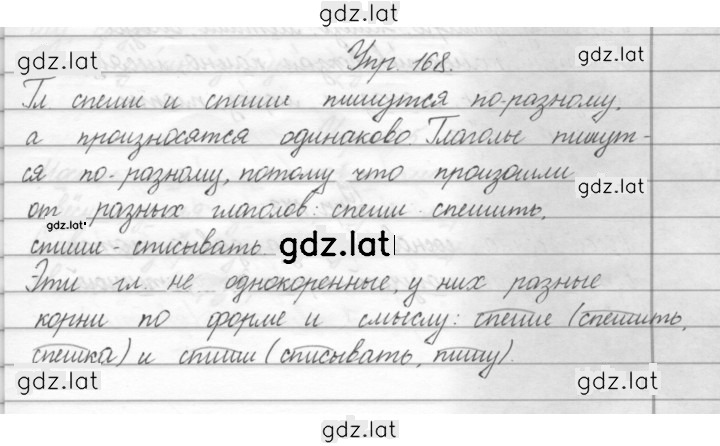 gdz.lat
gdz.lat Упр 168. gdz.lat
Гл спеши и спиши пишутся по-разному,
а произносятся одинаково. Глаголы пишут-
ся по-разному, потому что произошли
gdz.lat
от разных глаголов: спеши - спешить,
gdz.lat
спиши - списывать. gdz.lat
Эти гл не однокоренные, у них разные
корни по форме и смыслу: спеши (спешить,
спешка) и спиши (списывать, пишу).
gdz.lat gdz.lat
gdz.lat